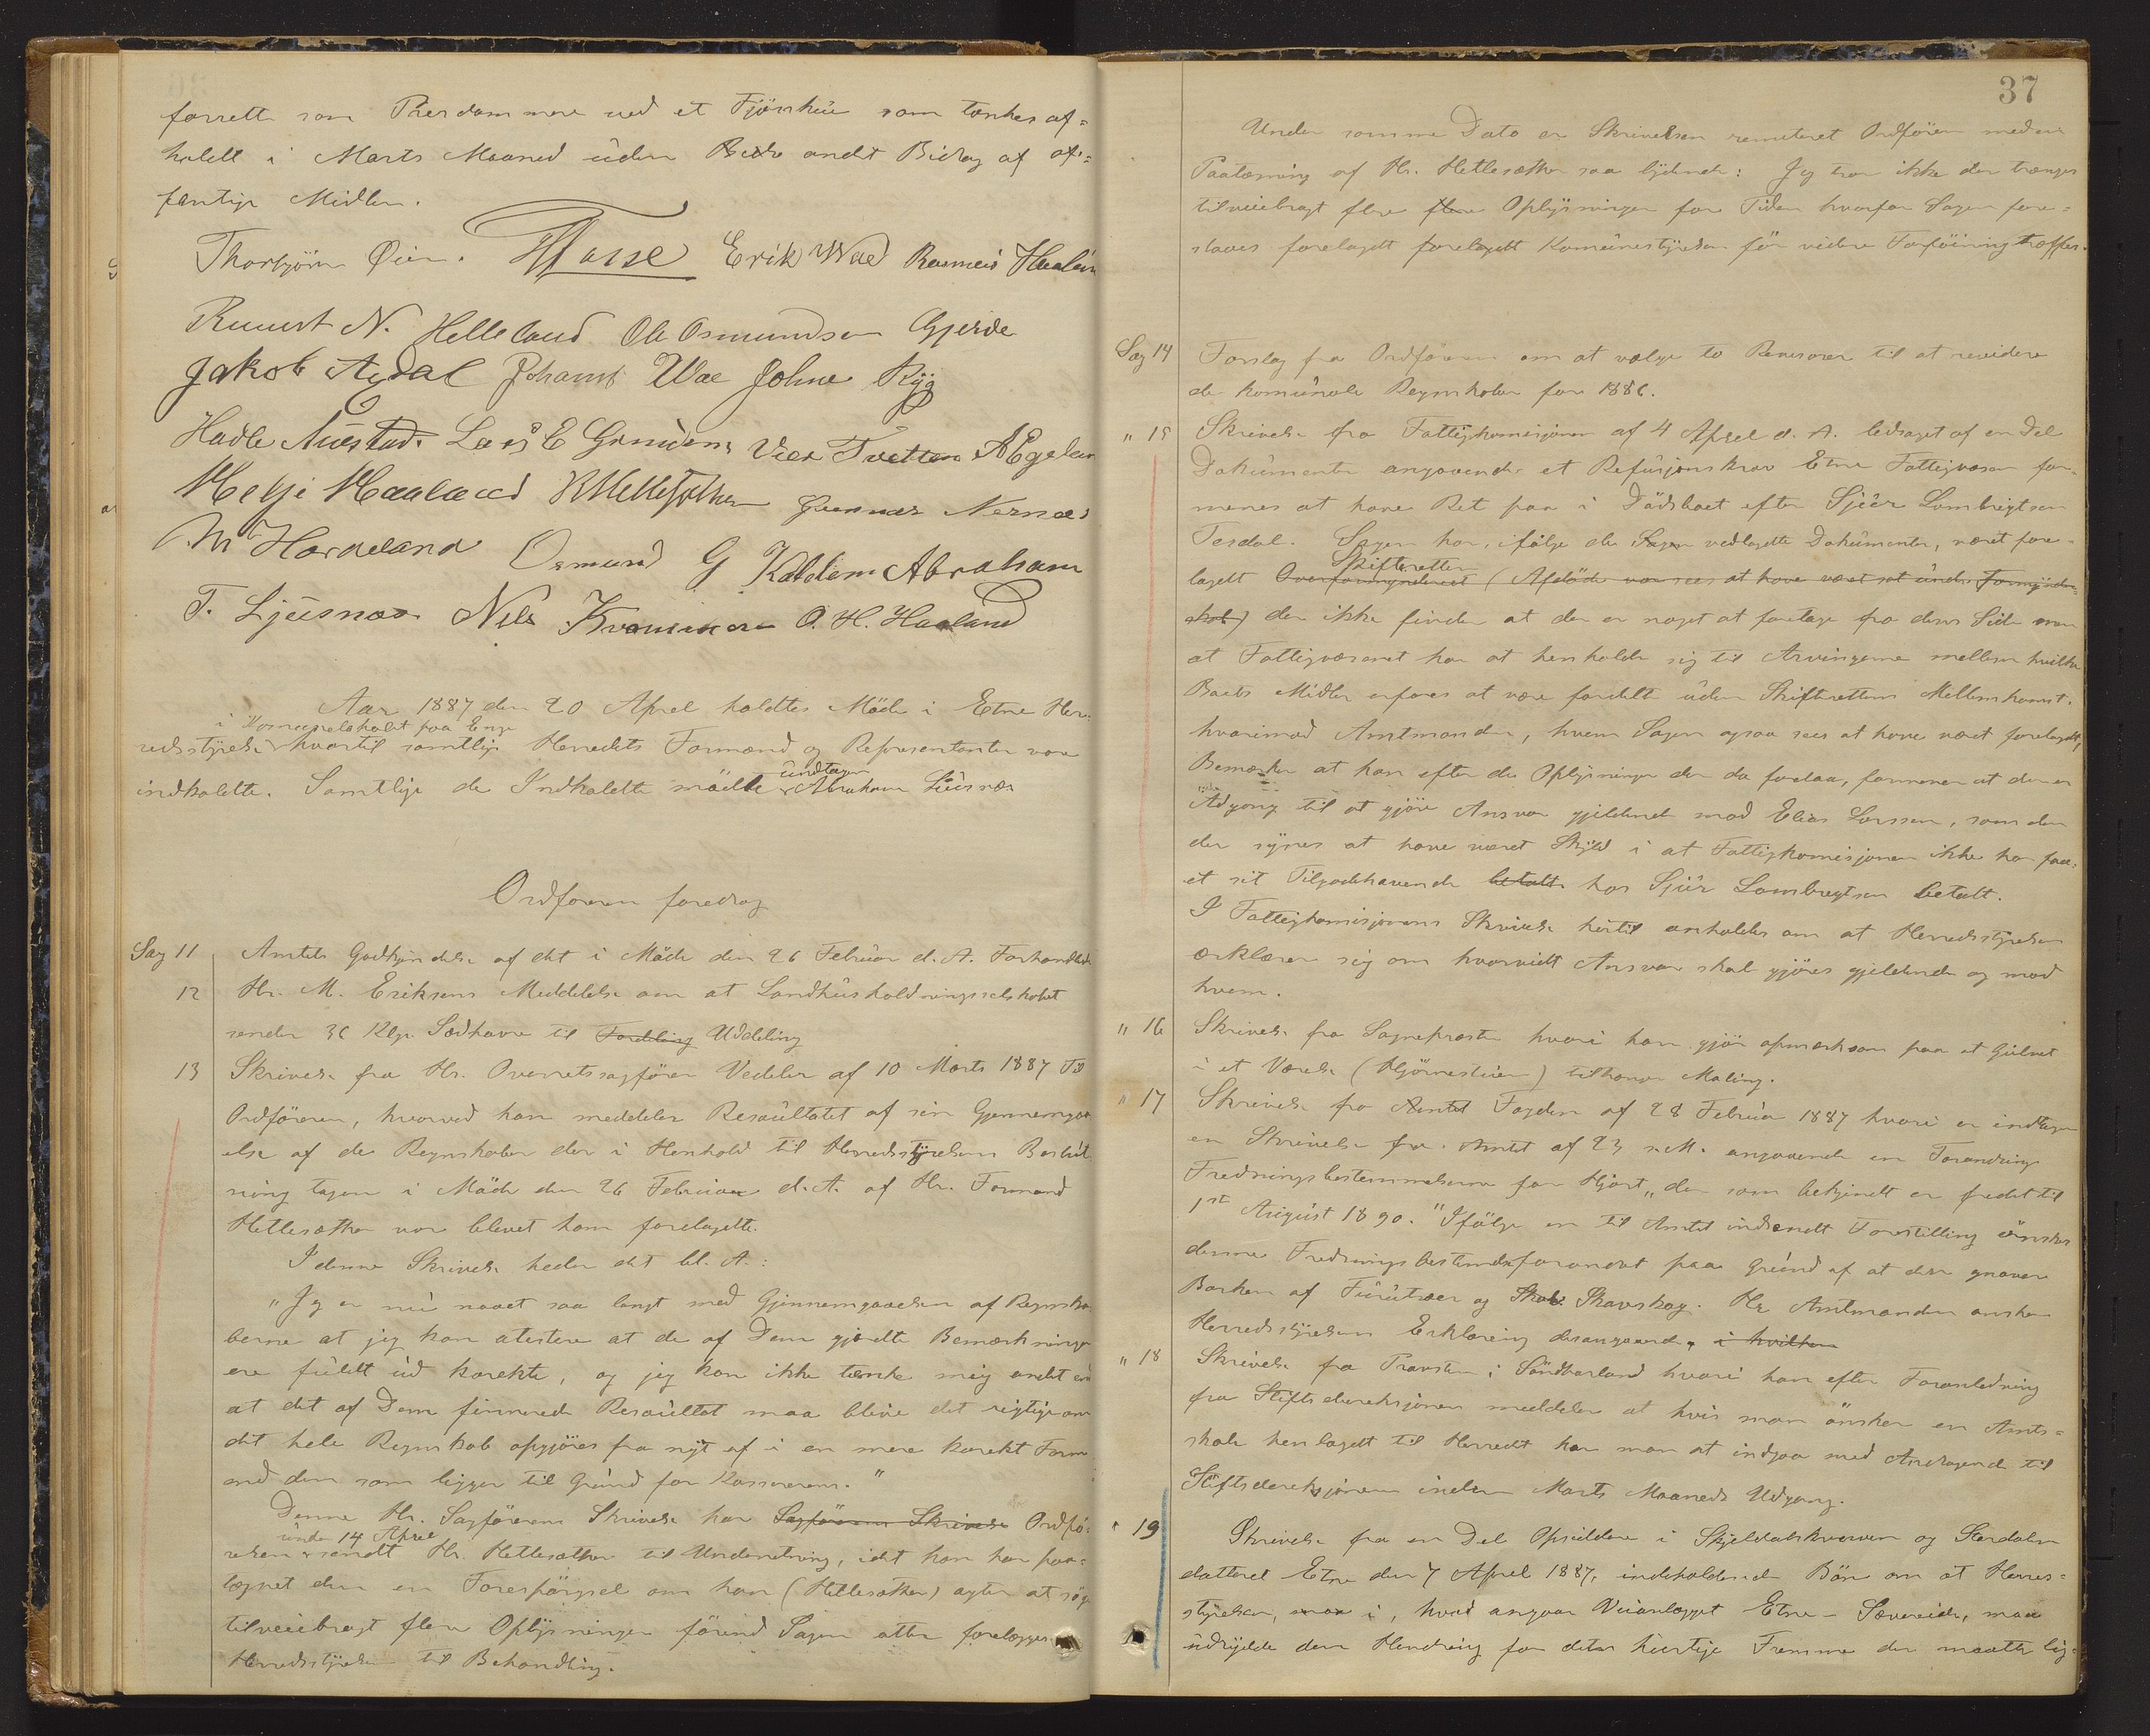 forrette som Prisdommere ved et Fjösskue som tænkes af=
holdt i Marts Maaned uden andet Bidrag af of=
fentlige Midler.
Thorbjörn Øien. Erik Wad Rasmus Haaland
Knut N. Helleland Ole Osmundsen Gjerde
Jakob Agdal Johannes Wae Johne Ryg
Hadle Austad. Lars E Grindem Vier Tvetten A Egeland
Helje Haaland K Hettesæther Gunnar Nernæs
M Hardeland Osmund G Kaldem Abraham
T. Ljusnæs Nils Kvamme O. H. Haaland
Aar 1887 den 20 April holdtes Möde i Etne Her=
i paa Enge
redsstyrelse hvortil samtlige Herredets Formænd og Repræsentanter vare
undtagen
indkaldte. Samtlige de Indkaldte mödte Abraham Liusnæs
Ordföreren foredrog
Sag 11 Amtets Godkjendelse af det i Möde den 26 Februar d. A. Forhandlede
12 Hr. M. Eriksens Meddelelse om at Landhusholdningsselskabet
sender 36 Klgr. Sædhavre til Fordeling Uddeling
13 Skrivelse fra Hr. Overretssagförer Vedeler af 10 Marts 1887 Til
Ordföreren, hvorved han meddeler Resultatet af sin Gjennemgaa
else af de Regnskaber der i Henhold til Herredsstyrelsens Beslut
ning tagen i Möde den 26 Februar d. A. af Hr. Formand
Hettesæther var blevet ham forelagte.
I denne Skrivelse heder det bl. A.:
"Jeg er nu naaet saa langt med Gjennemgaaelsen af Regnska
berne at jeg kan atestere at de af Dem gjordte Bemærkninger
ere fuldt ud korekte, og jeg kan ikke tænke mig andet end
at det af Dem finnerede Resultat maa blive det rigtige om
det hele Regnskab opgjöres fra nyt af i en mere korekt Form
end den som ligger til Grund for Kassererens."
Denne Hr. Sagförerens Skrivelse har Sagförerens Skrivelse Ordfö=
under 14 April
reren sendt Hr. Hettesæther til Underretning, idet han har paa=
tegnet den en Forespörgsel om han (Hettesæther) agter at söge
tilveiebragt flere Oplysninger förend Sagen atter forelægges
Herredsstyrelsen til Behandling.
37
Under samme Dato er Skrivelsen remiteret Ordföreren med en
Paategning af Hr. Hettesæther saa lydende: Jeg tror ikke der trænges
tilveiebragt flere flere Oplysninger for Tiden hvorfor Sagen fore=
slaaes forelagdt forelagdt Komunestyrelsen för videre Forföining træffes.
Sag 14 Forslag fra Ordföreren om at vælge to Revisorer til at revidere
de komunale Regnskaber for 1886.
" 15 Skrivelse fra Fattigkomisjonen af 4 April d. A. ledsaget af en Del
Dokumenter angaaende et Refusjonskrav Etne Fattigvæsen for=
menes at have Ret paa i Dödsboet efter Sjur Lambrigtsen
Tesdal. Sagen har, ifölge de Sagen vedlagte Dokumenter, været fore=
Skifteretten
lagdt Overformynderiet (Afdöde var sees at have været sat under Formynder=
skab) der ikke finder at der er noget at foretage fra deres Side men
at Fattigvæsenet har at henholde sig til Arvingerne mellem hvilke
Boets Midler erfares at være fordelt uden Skifterettens Mellemkomst.
hvorimod Amtmanden, hvem Sagen ogsaa sees at have været forelagdt,
Bemærker at han efter de Oplysninger der da forelaa, formener at der er
Adgang til at gjöre Ansvar gjeldende mod Elias Larssen, som den
der synes at have været Skyld i at Fattigkomisjonen ikke har faa=
et sit Tilgodehavende betalt hos Sjur Lambregtsen betalt.
I Fattigkomisjonens Skrivelse hertil anholdes om at Herredsstyrelsen
erklærer sig om hvorvidt Ansvar skal gjöres gjeldende og mod
hvem.
" 16 Skrivelse fra Sognepresten hvori han gjör opmerksom paa at Gulvet
i et Værelse (Hjörnestuen) tiltrænger Maling.
" 17 Skrivelse fra Amtet Fogden af 28 Februar 1887 hvori er indtagen
en Skrivelse fra Amtet af 23 s. M. angaaende en Forandring
Fredningsbestemmelserne for Hjort „der som bekjendt er fredet til
1st August 1890." Ifölge en til Amtet indsendt Forestilling önskes
denne Fredningsbestemdse forandret paa Grund af at den gnaver
Barken af Furutræer og Skov. Skavskog. Hr Amtmanden ønsker
Herredsstyrelsens Erklæring desangaaende, i hvilken
" 18 Skrivelse fra Provsten i Söndhorland hvori han efter Foranledning
fra Stiftsdireksjonen meddeler at hvis man önsker en Amts=
skole henlagdt til Herredet har man at indgaa med Andragende til
Stiftsdereksjonen inden Marts Maaneds Udgang.
" 19 Skrivelse fra en Del Opsiddere i Skjeldalskverven og Stordalen
datteret Etne den 7 April 1887, indeholdende Bön om at Herres=
styrelsen, maa i, hvad angaar Veianlægget Etne - Sævereide, maa
udrydde den Hendring for dets hurtige Fremme der maatte lig=